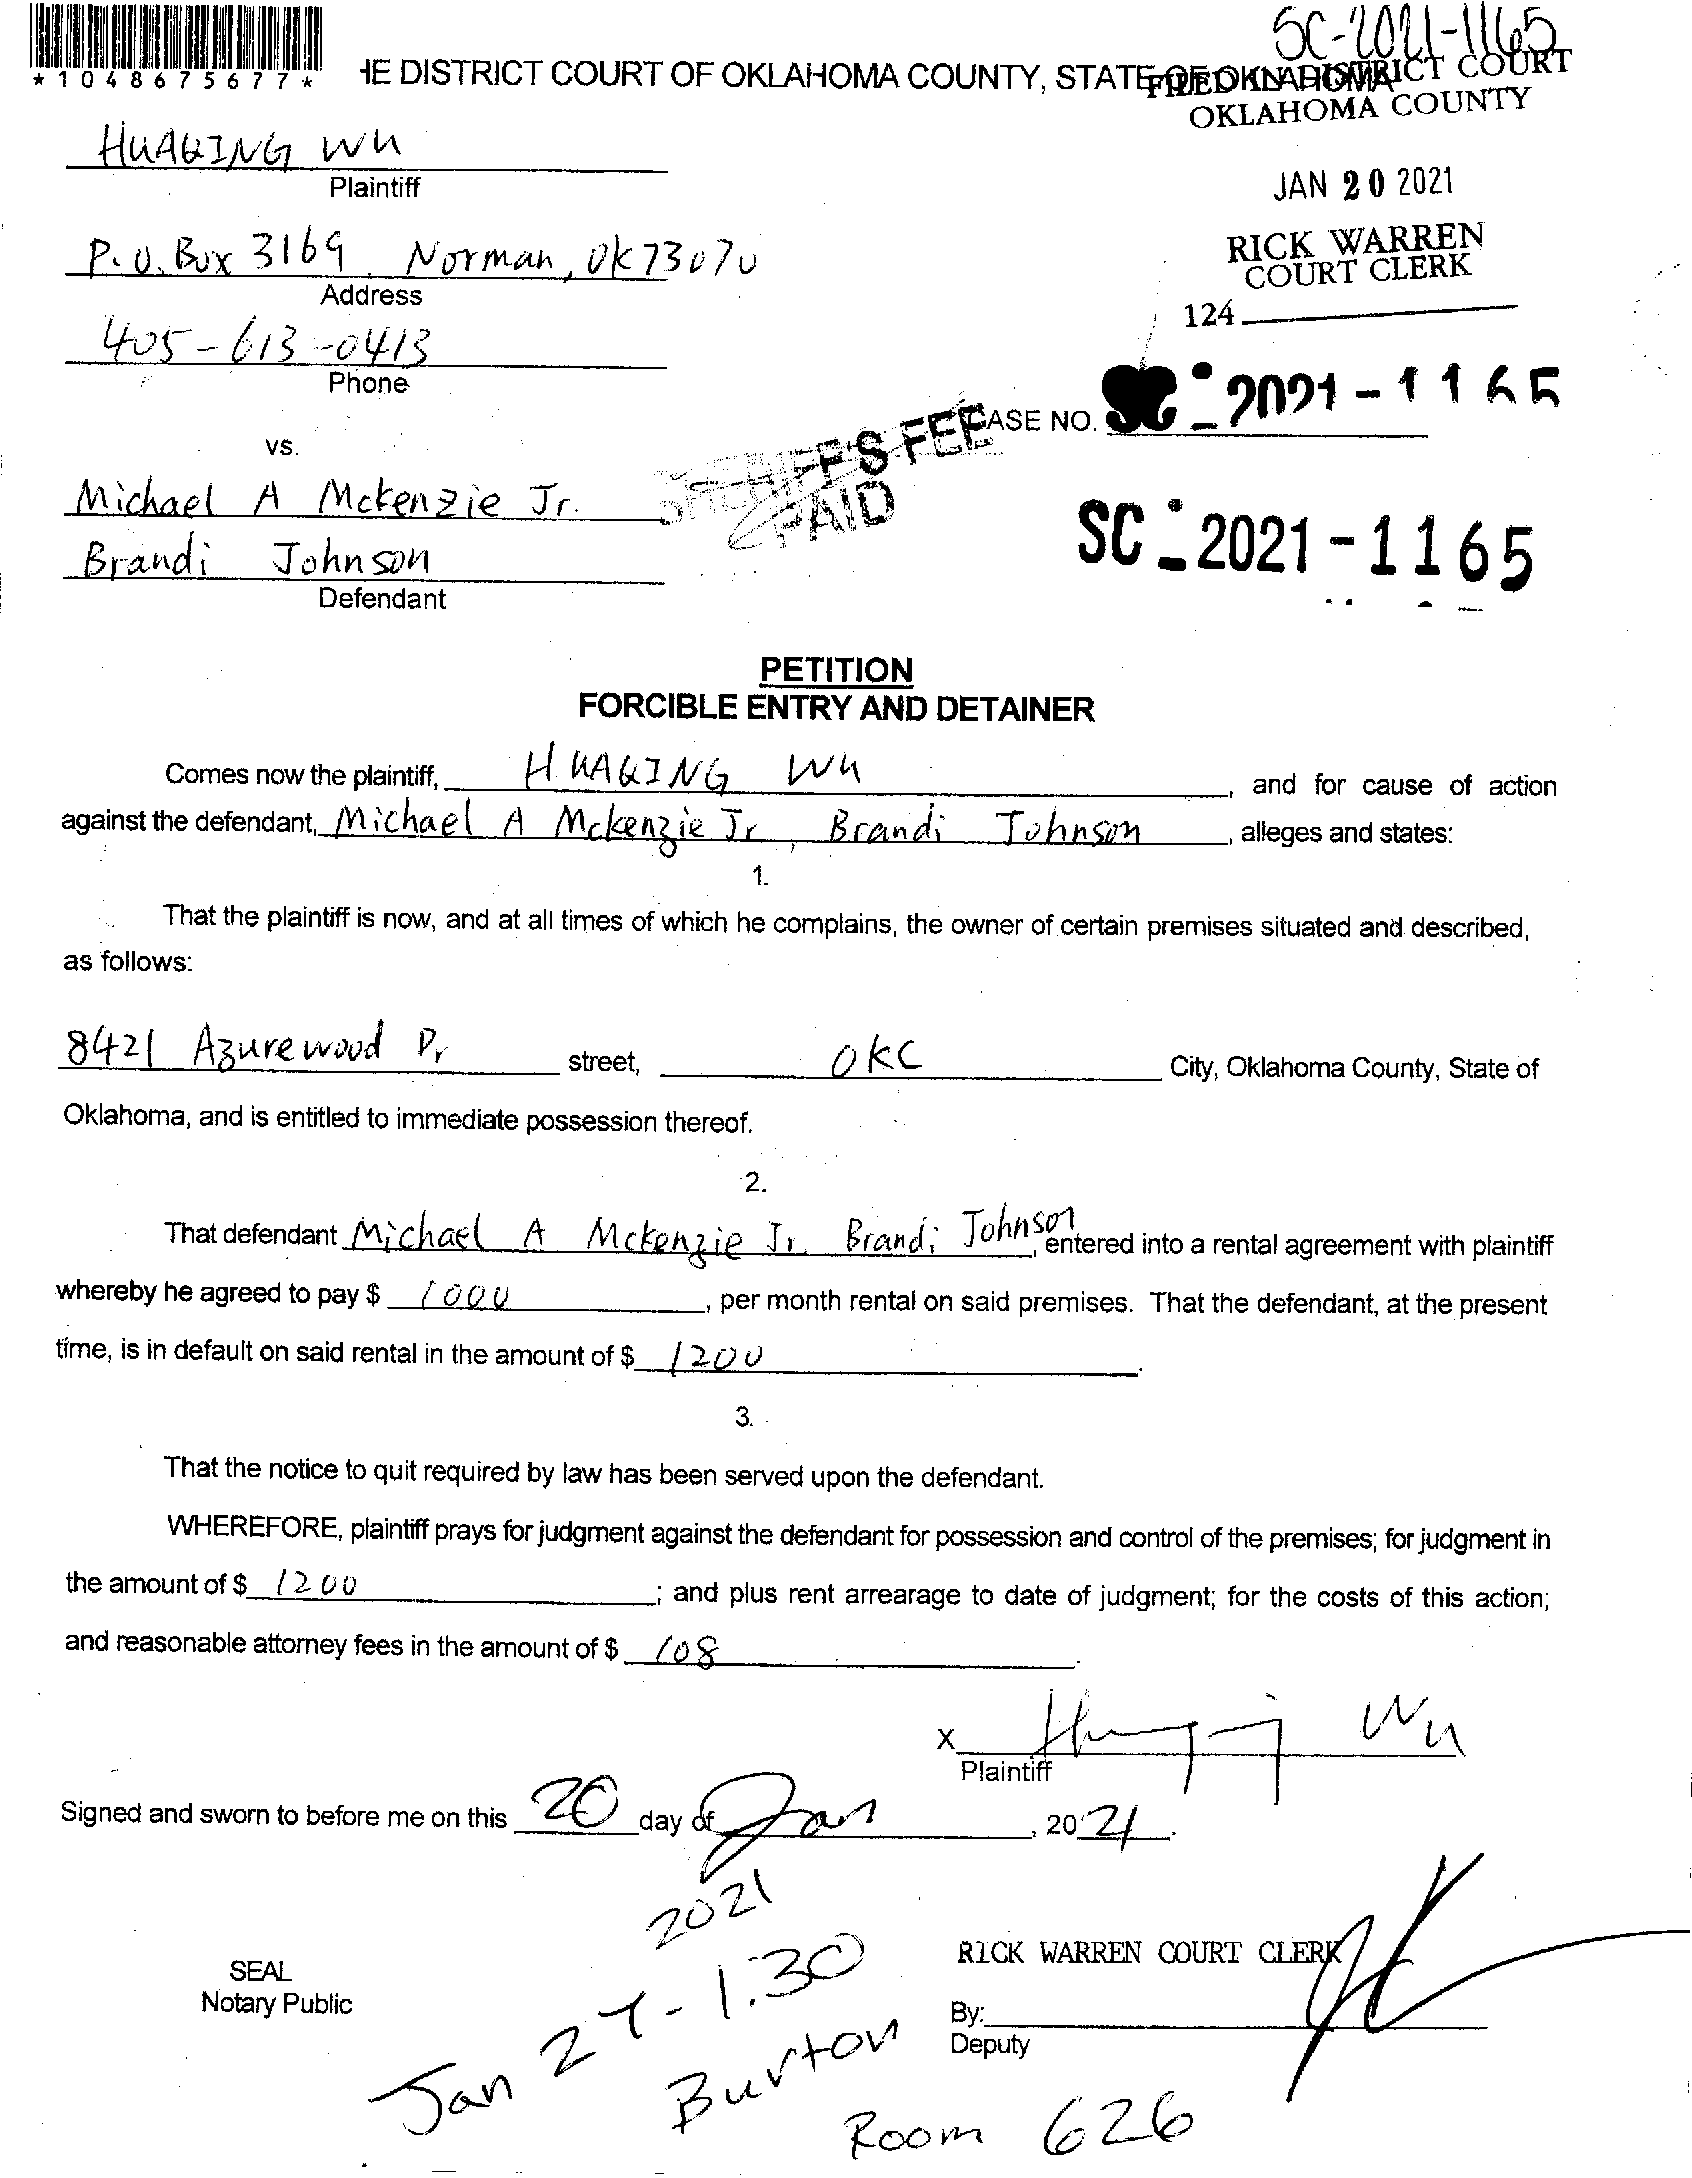 SC-2021-1165
*1048675677*
HE DISTRICT COURT OF OKLAHOMA COUNTY, STATE OF OKLAHOMA
FILED IN DISTRICT COURT
OKLAHOMA COUNTY
JAN 20 2021
RICK WARREN
COURT CLERK
124
HUAQING WU
Plaintiff
P.O. Box 3169 Norman, OK 73070
Address
405-613-0413
Phone
vs.
SHERIFF'S FEE
PAID
CASE NO. SC-2021-1165
Michael A Mckenzie Jr.
Brandi Johnson
Defendant
SC-2021-1165
PETITION
FORCIBLE ENTRY AND DETAINER
Comes now the plaintiff, HUAQING WU, and for cause of action
against the defendant, Michael A Mckenzie Jr, Brandi Johnson, alleges and states:
1.
That the plaintiff is now, and at all times of which he complains, the owner of certain premises situated and described,
as follows:
8421 Azurewood Dr street, OKC City, Oklahoma County, State of
Oklahoma, and is entitled to immediate possession thereof.
2.
That defendant Michael A Mckenzie Jr. Brandi Johnson, entered into a rental agreement with plaintiff
whereby he agreed to pay $ 1000, per month rental on said premises. That the defendant, at the present
time, is in default on said rental in the amount of $ 1200.
3.
That the notice to quit required by law has been served upon the defendant.
WHEREFORE, plaintiff prays for judgment against the defendant for possession and control of the premises; for judgment in
the amount of $ 1200; and plus rent arrearage to date of judgment; for the costs of this action;
and reasonable attorney fees in the amount of $ 108.
x Huaqing Wu
Plaintiff
Signed and sworn to before me on this 20 day of Jan, 2021.
2021
Jan 27-1:30
Burton
Room 626
SEAL
Notary Public
RICK WARREN COURT CLERK
By:
Deputy